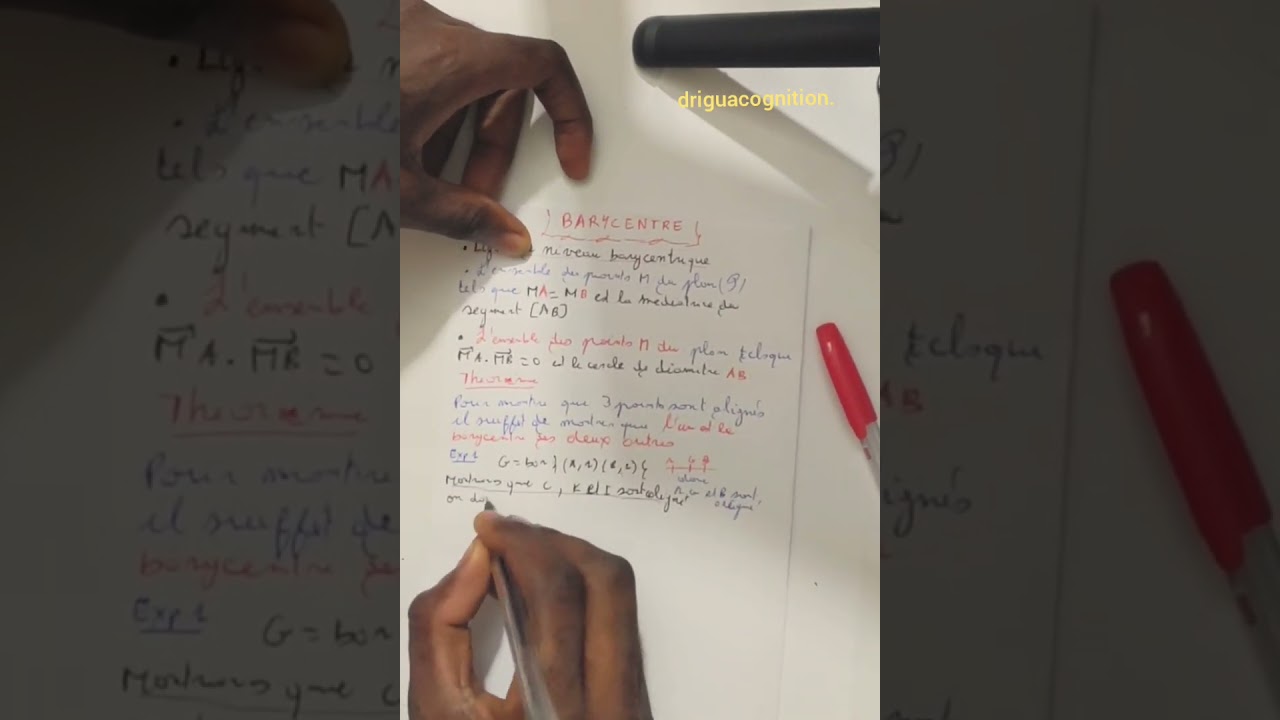 driguacognition.
BARYCENTRE
• Lig niveau barycentrique
• L'ensemble des points M du plan (P)
tels que MA = MB est la mediatrice du
segment [AB]
• L'ensemble des points M du plan tels que
MA. MB = 0 est le cercle de diametre AB
Theoreme
Pour montre que 3 points sont alignés
il suffit de montrer que l'un est le
barycentre des deux autres
Exp 1 G = bar { (A, 1) (B, 2) }
donc
Montrons que C, K et I sont aligné A, G et B sont
aligné
on do